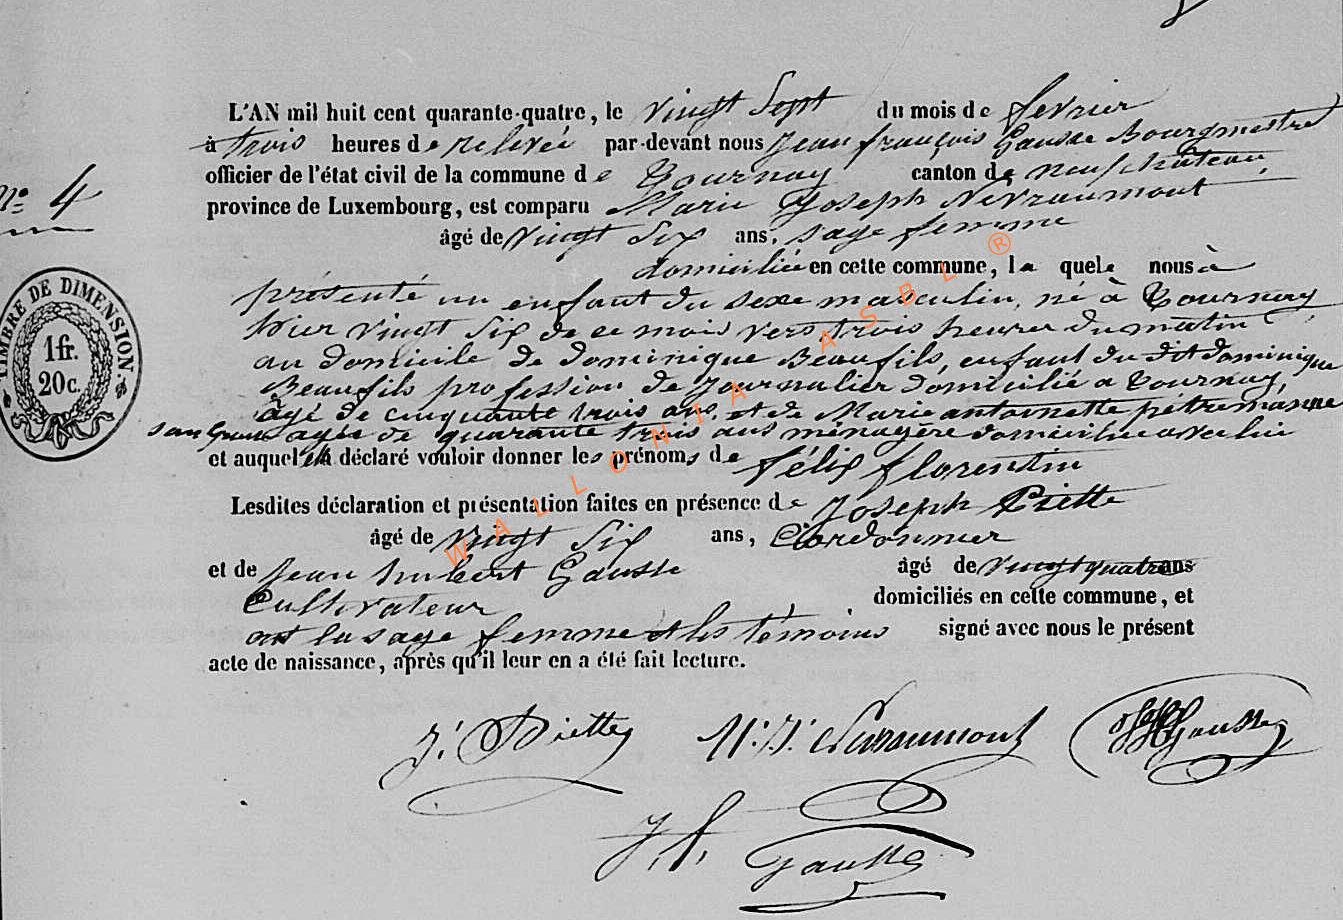 L'AN mil huit cent quarante-quatre, le vingt Sept du mois de fevrier
à trois heures de relevée par-devant nous Jean françois Gausse Bourgmestre
officier de l'état civil de la commune de Tournay canton de neufchateau,
N° 4
province de Luxembourg, est comparu Marie Joseph Nevraumont
âgé de vingt Six ans, sage femme
domiciliée en cette commune, la quele nous à
présenté un enfant du sexe masculin, né à Tournay
hier vingt Six de ce mois vers trois heures du matin
au domicile de dominique Beaufils, enfant du dit dominique
Beaufils profession de Journalier domicilié a Tournay,
âgé de cinquante trois ans, et de Marie antoinette pétremanne
âgée de quarante trois ans ménagère domiciliée avec lui
et auquel elle déclaré vouloir donner les prénoms de félix florentin
Lesdites déclaration et présentation faites en présence de Joseph Piette
âgé de vingt Six ans, Cordonnier
et de Jean hubert Gausse âgé de vingt quatre ans
Cultivateur domiciliés en cette commune, et
ont la sage femme et les témoins signé avec nous le présent
acte de naissance, après qu'il leur en a été fait lecture.
TIMBRE DE DIMENSION.
1 fr.
20 c.
J. Piette M. J. Nevraumont JH Gausse
J. f. Gausse
WALLONIA ASBL ®